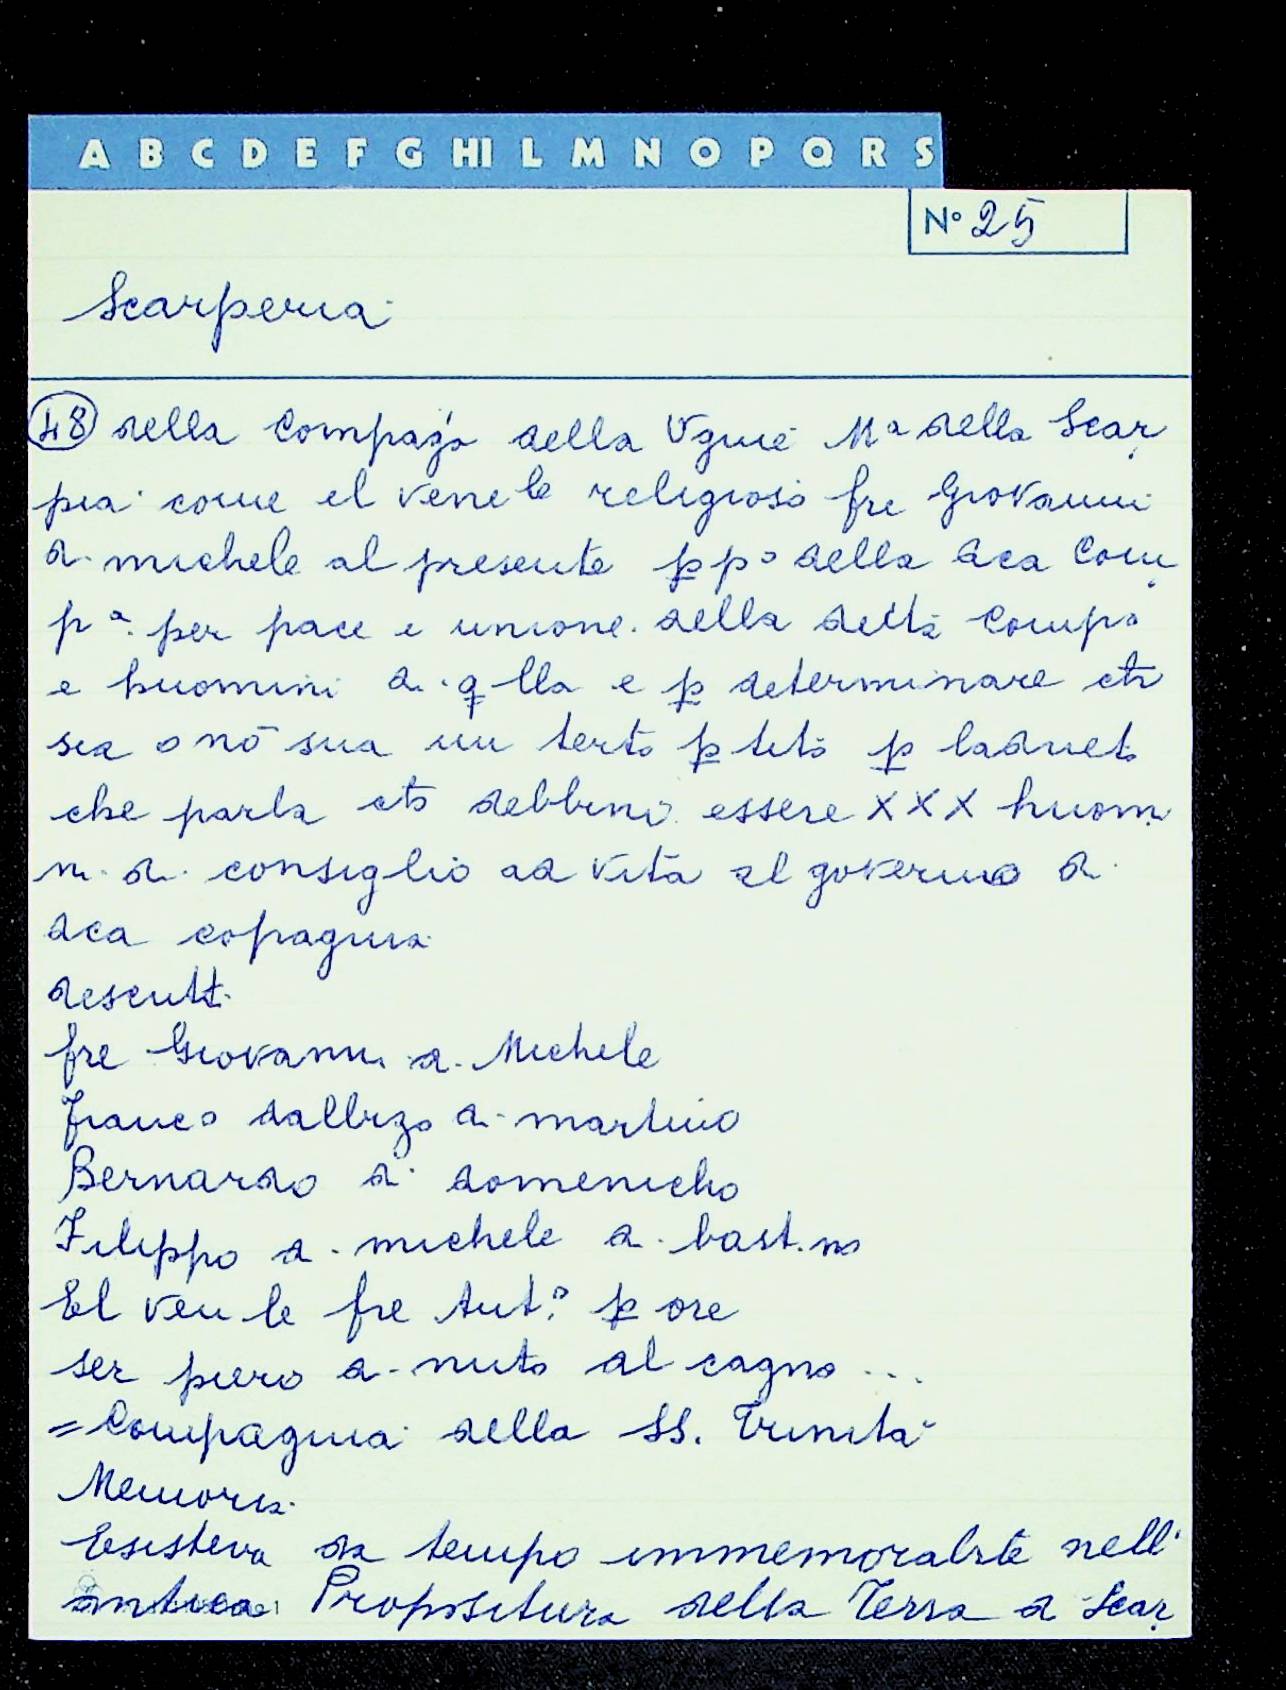 A B C D E F G HI L M N O P Q R S
N° 25
Scarperia
48 della Compagª della Vgine Mª della Scar
pia come el venele religioso fre Giovanni
di michele al presente pp° della dca Com
pª per pace e unione della detta Compª
e huomini di qlla e p determinare chi
sia o nō sia un terto p teto p ladueto
che parla cto debbino essere XXX huom
ni di consiglio ad vita al governo di
dca copagnia
descritt
fre Giovanni di Michele
franco dalbizo di martino
Bernardo di domenicho
Filippo di michele di bast.no
El ven le fre Ant.° p ore
ser piero di nuto al cagno ...
= Compagnia della SS. Trinità
Memoria
Esisteva da tempo immemorabte nell'
antica Propositura della Terra di Scar